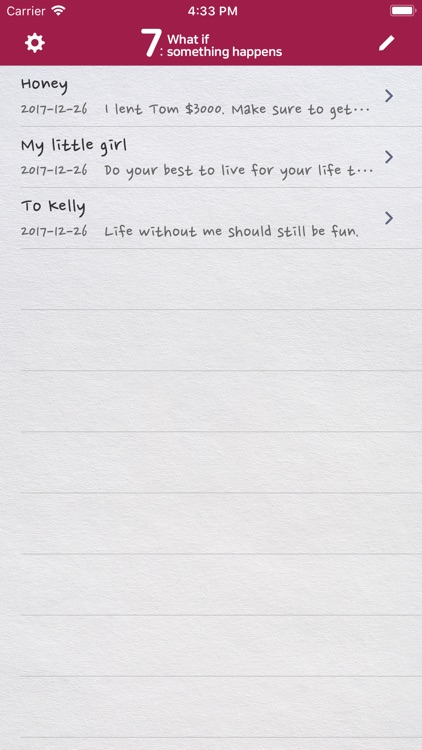 Carrier 4:33 PM
7: What if
something happens
Honey
2017-12-26 I lent Tom $3000. Make sure to get...
My little girl
2017-12-26 Do your best to live for your life t...
To Kelly
2017-12-26 Life without me should still be fun.